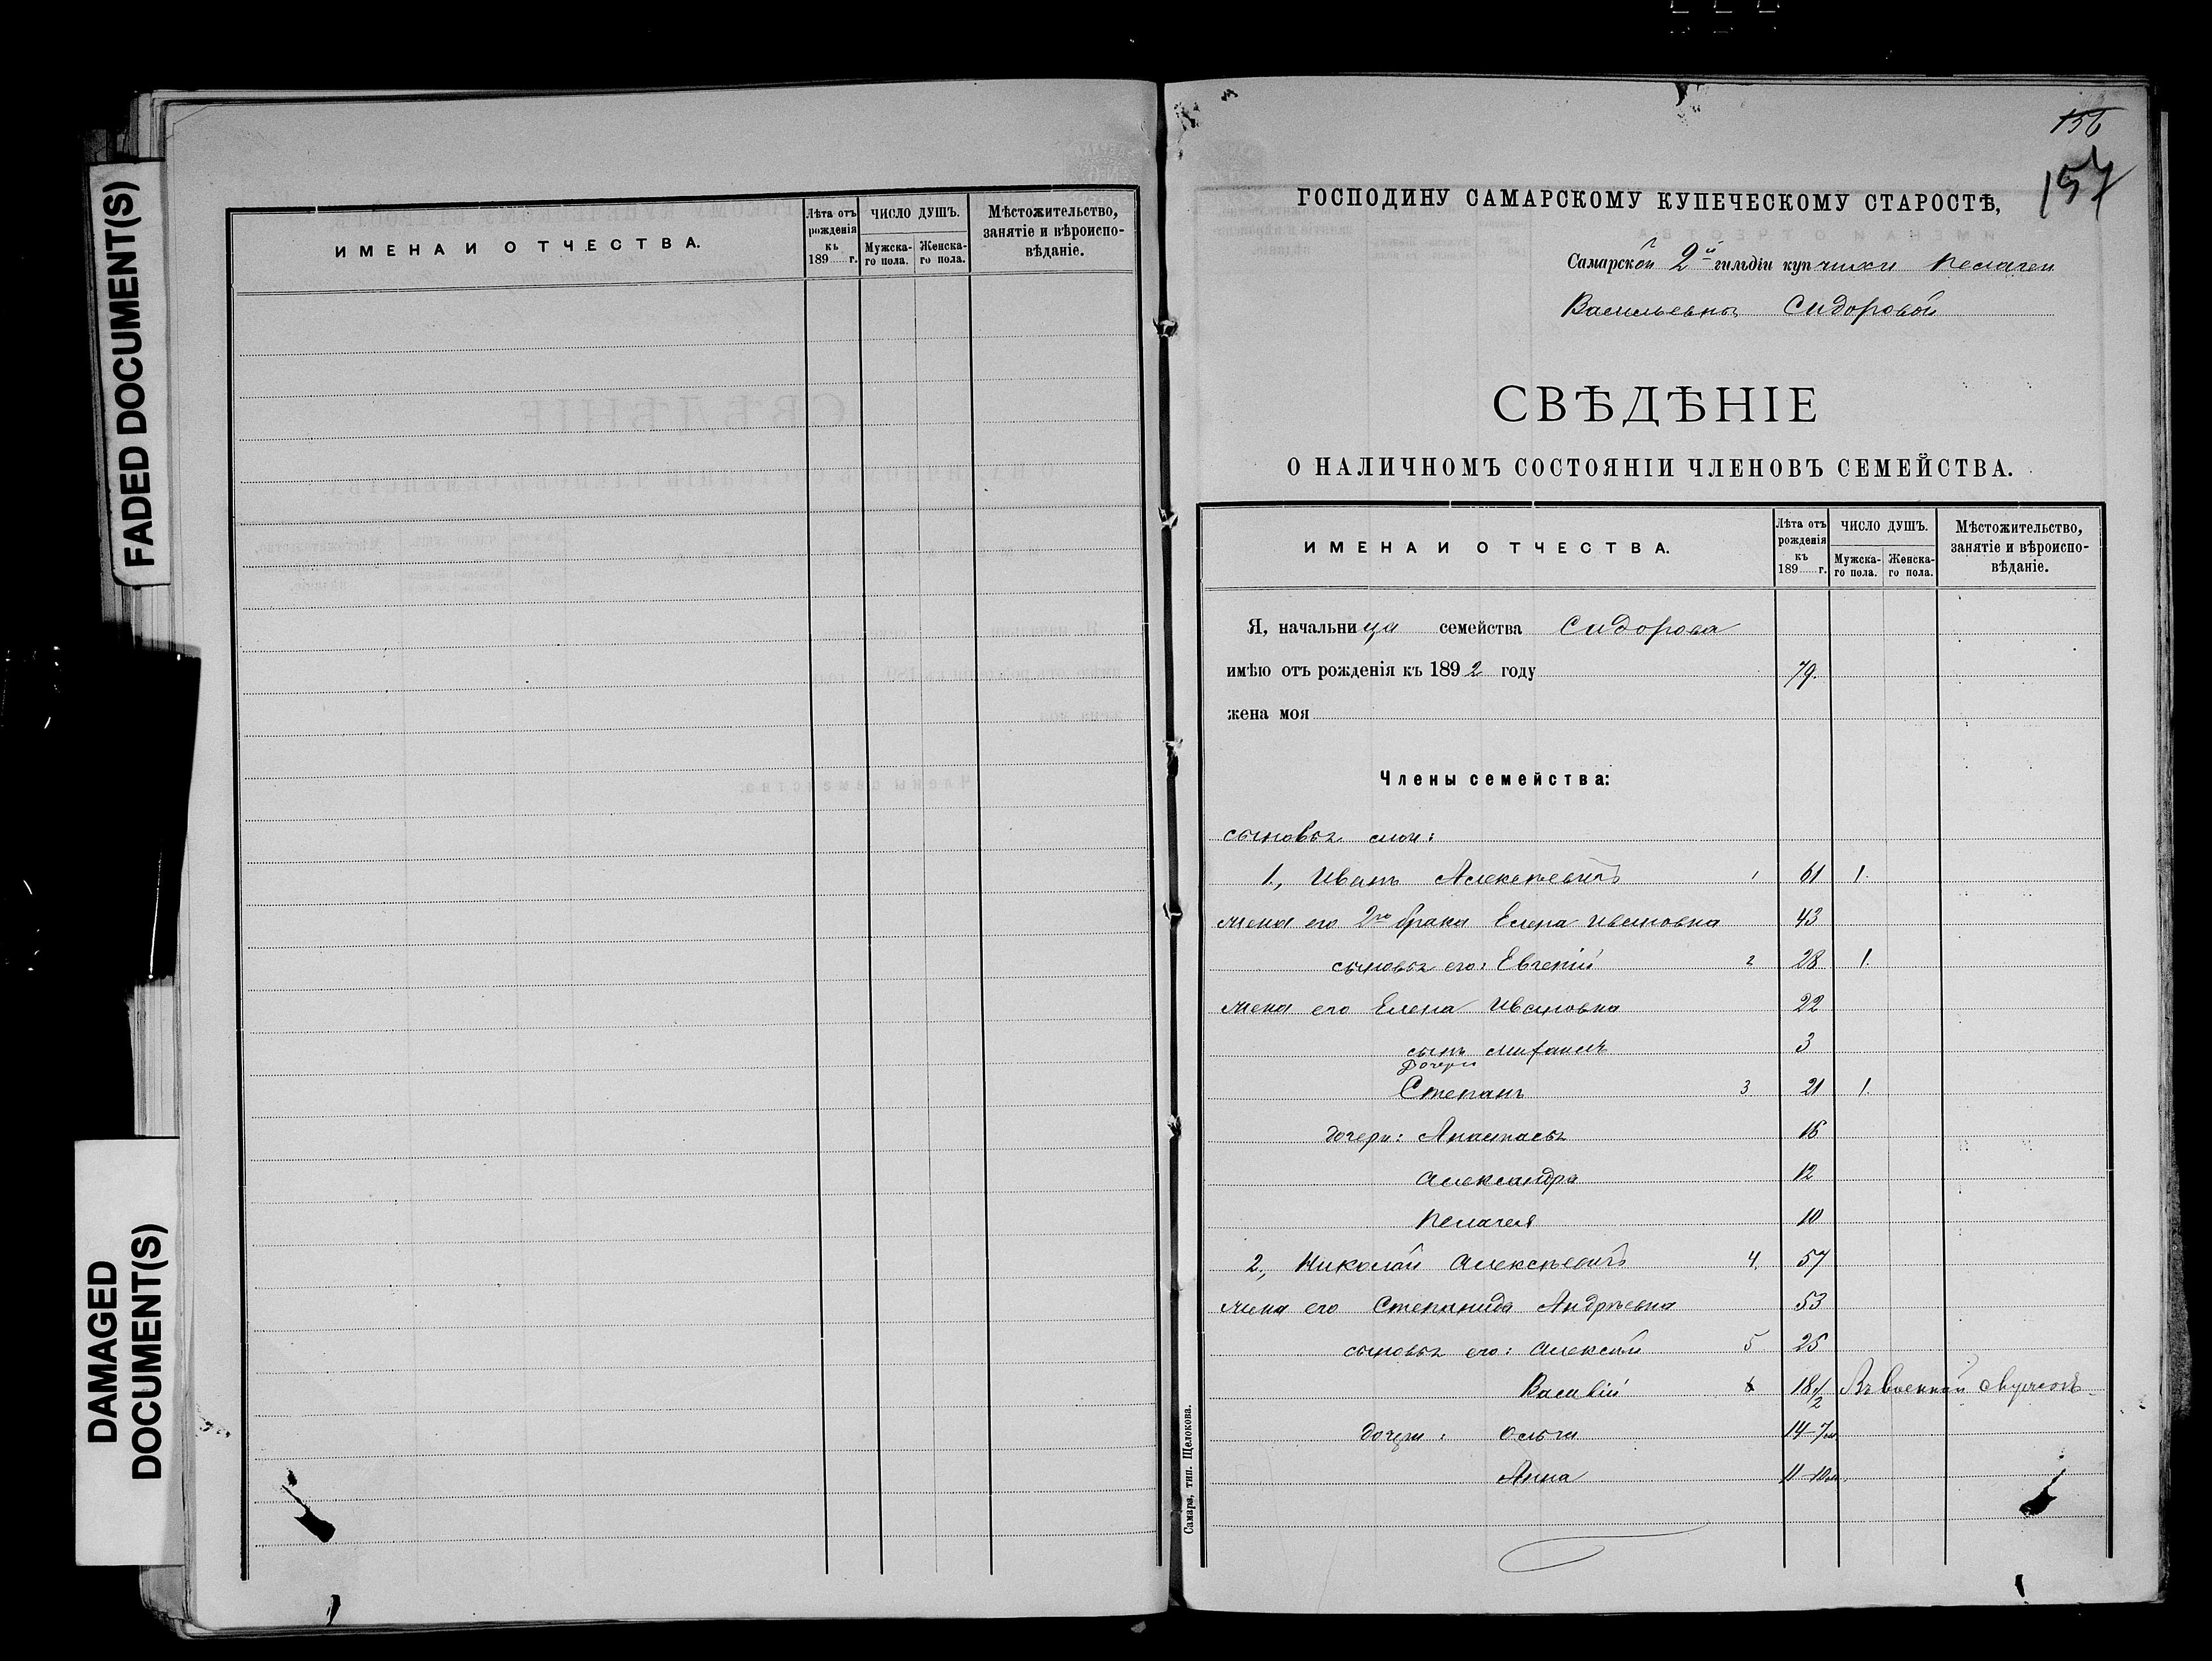 FADED DOCUMENT(S)
DAMAGED
DOCUMENT(S)
ИМЕНА И ОТЧЕСТВА.
Лѣта отъ рожденія къ 189 г.
ЧИСЛО ДУШЪ.
Мужска-го пола.
Женска-го пола.
Мѣстожительство, занятіе и вѣроиспо-вѣданіе.
156
157
ГОСПОДИНУ САМАРСКОМУ КУПЕЧЕСКОМУ СТАРОСТѢ,
Самарской 2й гильдіи купчихи Пелагеи
Васильевны Сидоровой
СВѢДѢНІЕ
О НАЛИЧНОМЪ СОСТОЯНІИ ЧЛЕНОВЪ СЕМЕЙСТВА.
ИМЕНА И ОТЧЕСТВА.
Лѣта отъ рожденія къ 189 г.
ЧИСЛО ДУШЪ.
Мужска-го пола.
Женска-го пола.
Мѣстожительство, занятіе и вѣроиспо-вѣданіе.
Я, начальница семейства Сидорова
имѣю отъ рожденія къ 1892 году 79.
жена моя
Члены семейства:
сыновья мои:
1., Иванъ Алексѣевичъ 1 61 1.
жена его 2го брака Елена Ивановна 43
сыновья его: Евгеній 2 28 1.
жена его Елена Ивановна 22
сынъ Михаилъ 3
Дочери
Степанъ 3 21 1.
дочери: Анастасья 16
Александра 12
Пелагея 10
2., Николай Алексѣевичъ 4. 57
жена его Степанида Андрѣевна 53
сыновья его: Алексѣй 5 25
Василій 6 18 1/2 Въ военной службѣ
дочери: Ольга 14 7 м.
Анна 11 10 м.
Самара, тип. Щелокова.